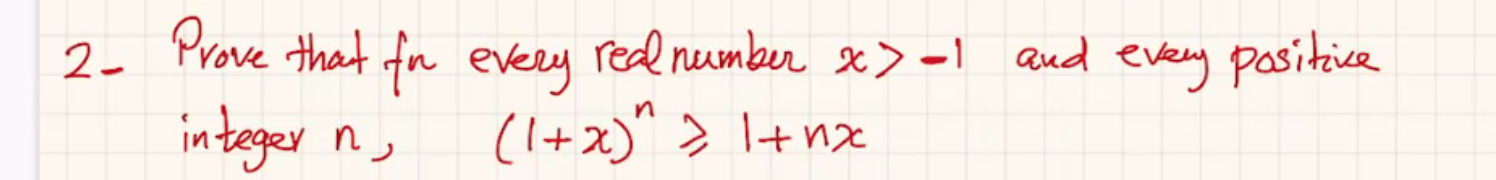 2- Prove that for every real number x > -1 and every positive
integer n, (1+x)^n ≥ 1+nx